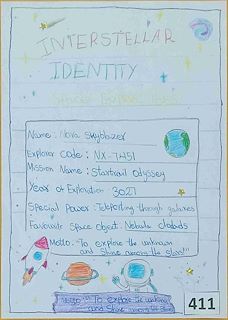 INTERSTELLAR
IDENTITY
Name : Nova Skyblazer
Explorer Code : NX-7451
Mission Name : Startrail Odyssey
Year of Exploration : 3027
Special Power : Teleporting through galaxies
Favourite Space Object : Nebula clouds
Motto : "To explore the unknown
and shine among the stars"
Motto : "To explore the unknown
and shine among the stars"
411